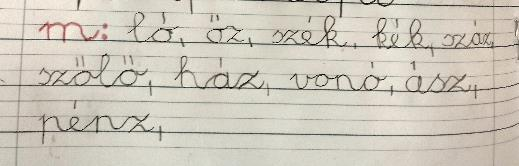 m: ló, őz, szék, kék, száz,
szőlő, ház, vonó, ász,
pénz,